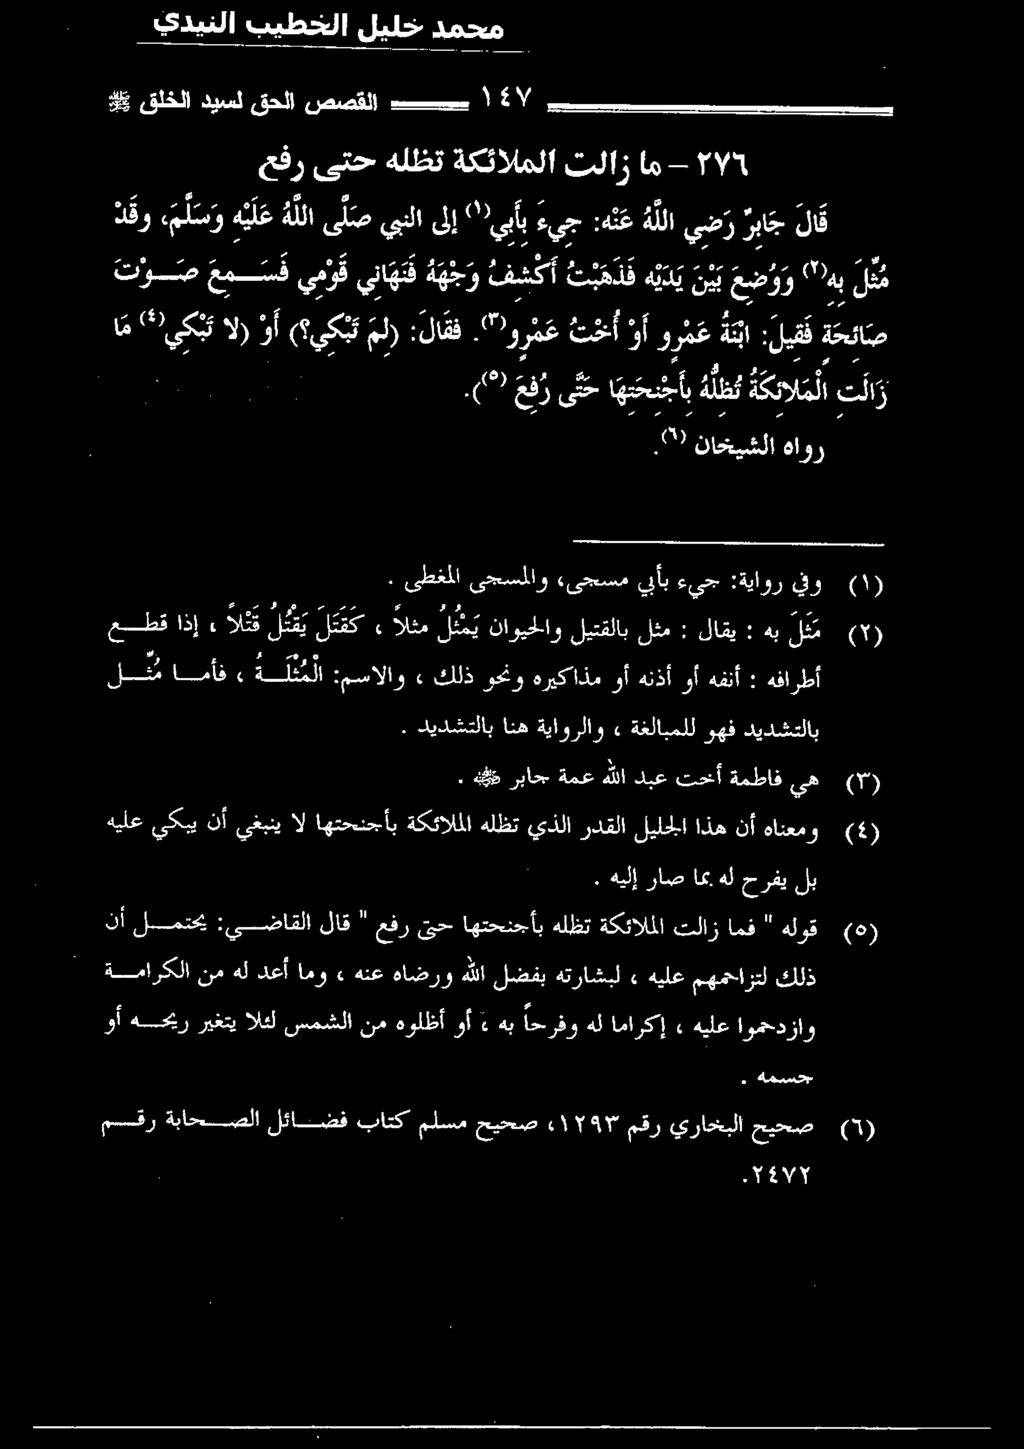 محمد خليل الخطيب النيدي
القصص الحق لسيد الخلق ﷺ ١٤٧
٢٧٦ – ما زالت الملائكة تظله حتى رفع
قَالَ جَابِرٌ رَضِي اللَّهُ عَنْه: جِيءَ بِأَبِي(١) إلى النبي صَلَّى اللَّهُ عَلَيْهِ وَسَلَّمَ، وقَدْ
مُثِّلَ بِهِ(٢) وَوُضِعَ بَيْنَ يَدَيْهِ فَذَهَبْتُ أَكْشِفُ وَجْهَهُ فَنَهَانِي قَوْمِي فَسَمِعَ صَوْتَ
صَائِحَةٍ فَقِيلَ: ابْنَةُ عَمْرٍو أَوْ أُخْتُ عَمْرٍو(٣). فقَالَ: (لِمَ تَبْكِي؟) أَوْ (لا تَبْكِي(٤) مَا
زَالَتِ الْمَلائِكَةُ تُظِلُّهُ بِأَجْنِحَتِهَا حَتَّى رُفِعَ(٥)).
رواه الشيخان(٦).
(١) وفي رواية: جيء بأبي مسجى، والمسجى المغطى.
(٢) مَثَلَ به : يقال : مثل بالقتيل والحيوان يَمْثُلُ مثلاً ، كَقَتَلَ يَقْتُلُ قَتْلاً ، إذا قطع
أطرافه : أنفه أو أذنه أو مذاكيره ونحو ذلك ، والاسم: الْمُثْلَةُ ، فأما مُثِّل
بالتشديد فهو للمبالغة ، والرواية هنا بالتشديد .
(٣) هي فاطمة أخت عبد الله عمة جابر ﷺ .
(٤) ومعناه أن هذا الجليل القدر الذي تظله الملائكة بأجنحتها لا ينبغي أن يبكي عليه
بل يفرح له بما صار إليه .
(٥) قوله " فما زالت الملائكة تظله بأجنحتها حتى رفع " قال القاضي: يحتمل أن
ذلك لتزاحمهم عليه ، لبشارته بفضل الله ورضاه عنه ، وما أعد له من الكرامة
وازدحموا عليه ، إكراما له وفرحاً به ، أو أظلوه من الشمس لئلا يتغير ريحه أو
جسمه .
(٦) صحيح البخاري رقم ١٢٩٣، صحيح مسلم كتاب فضائل الصحابة رقم
٢٤٧٢.